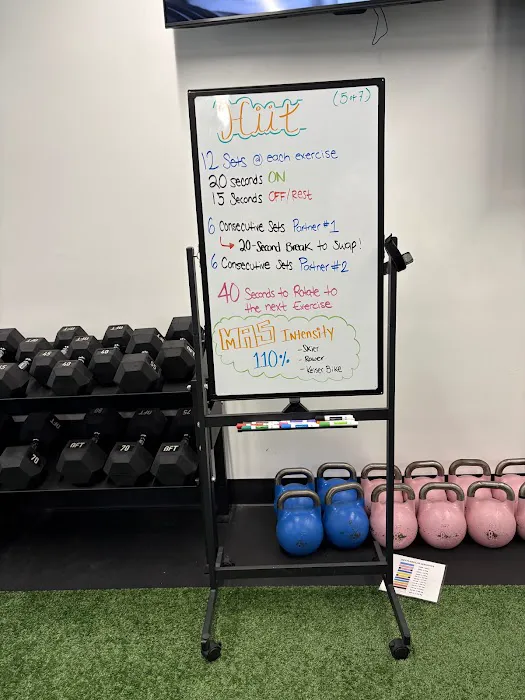 Hiit
(5+7)
12 Sets @ each exercise
20 seconds ON
15 Seconds OFF/Rest
6 Consecutive Sets Partner #1
↳ 20-Second Break to Swap!
6 Consecutive Sets Partner #2
40 Seconds to Rotate to
the next Exercise
MAS Intensity
110%
- Skier
- Rower
- Keiser Bike
70